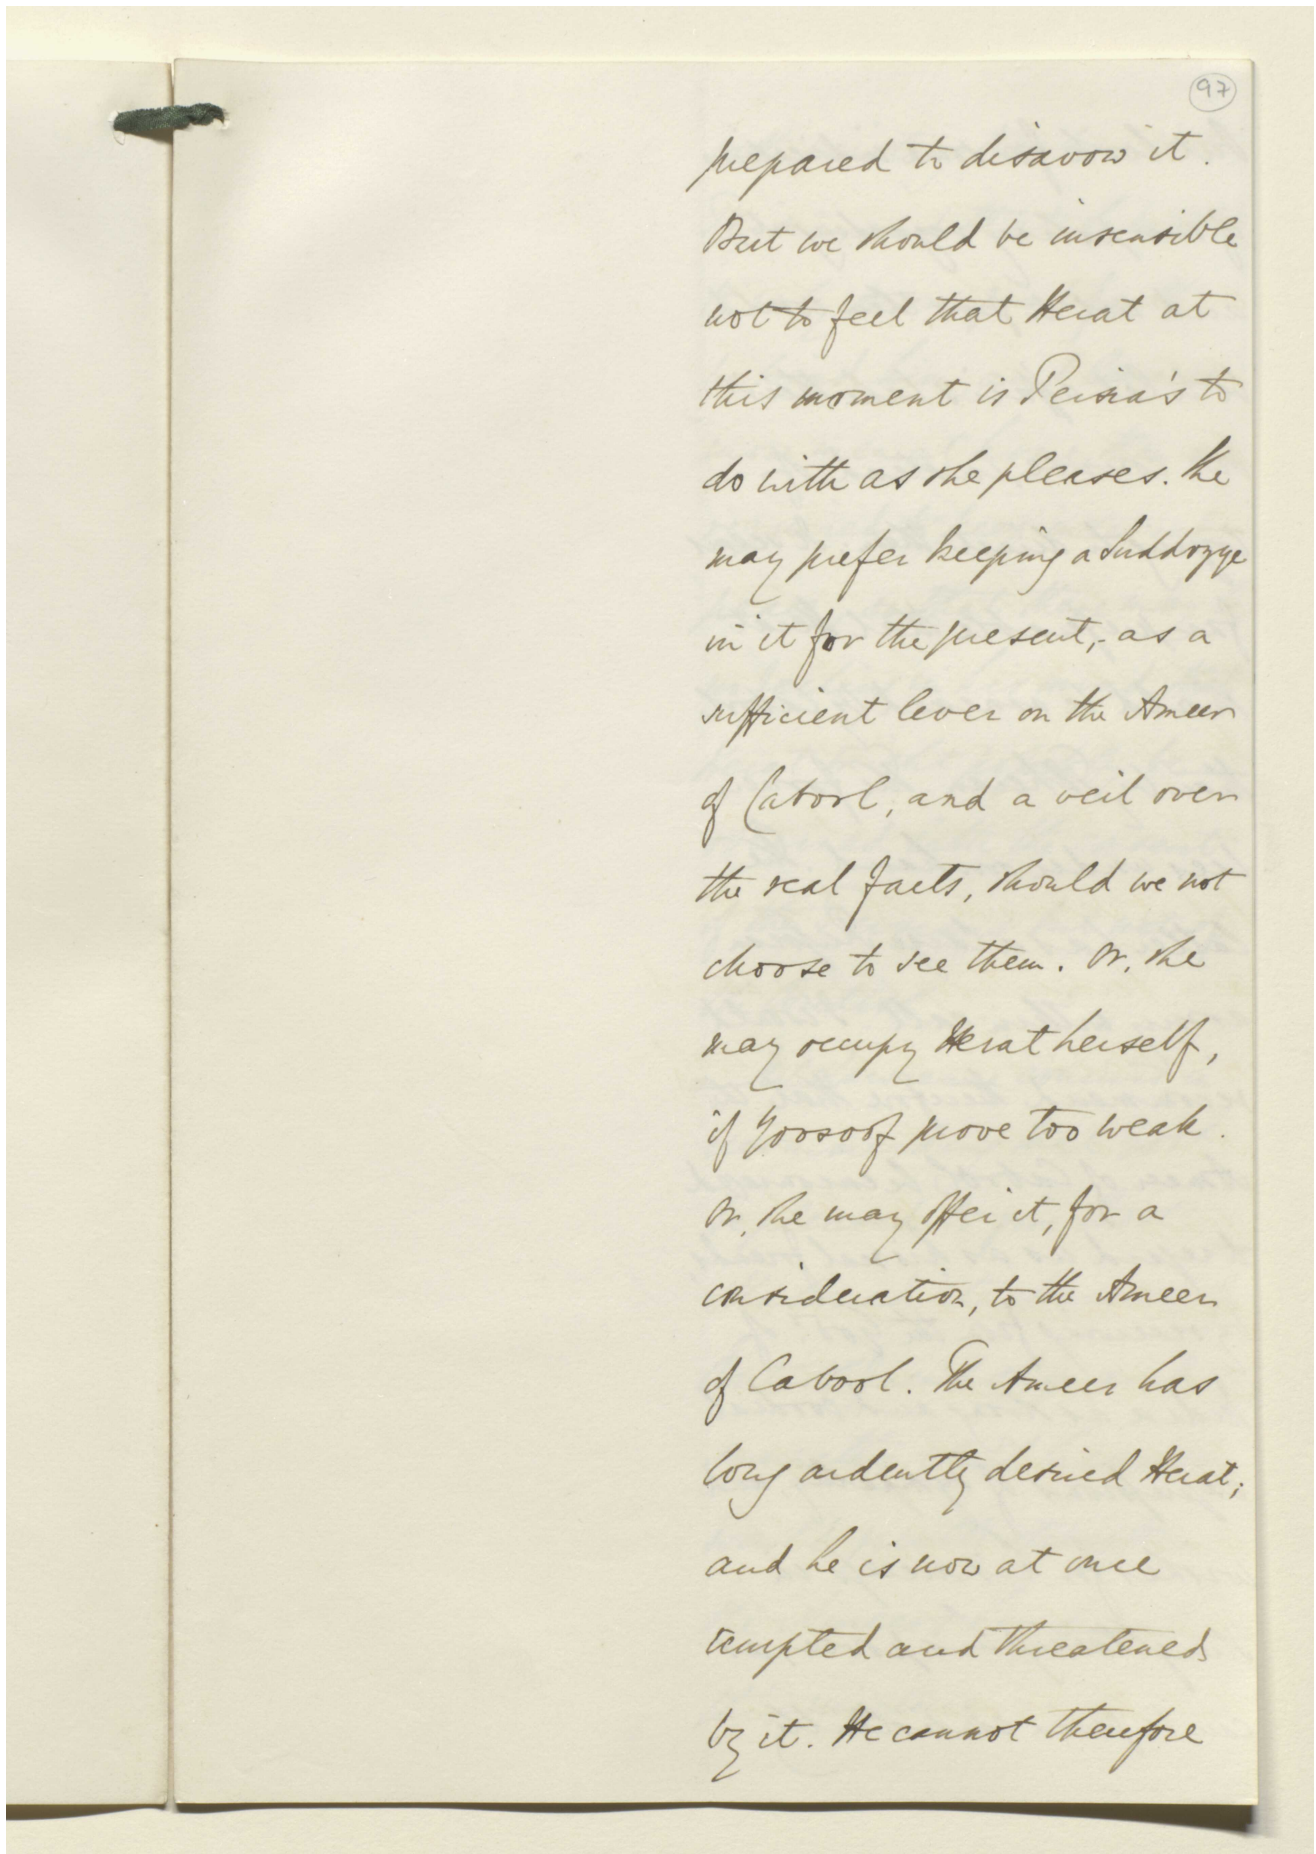 97
prepared to disavow it.
But we should be insensible
not to feel that Herat at
this moment is Persia's to
do with as she pleases. She
may prefer keeping a Suddozye
in it for the present, - as a
sufficient lever on the Ameer
of Cabool, and a veil over
the real facts, should we not
choose to see them. Or, she
may occupy Herat herself,
if Yoosoof prove too weak.
Or, she may offer it, for a
consideration, to the Ameer
of Cabool. The Ameer has
long ardently desired Herat;
and he is now at once
tempted and threatened
by it. He cannot therefore